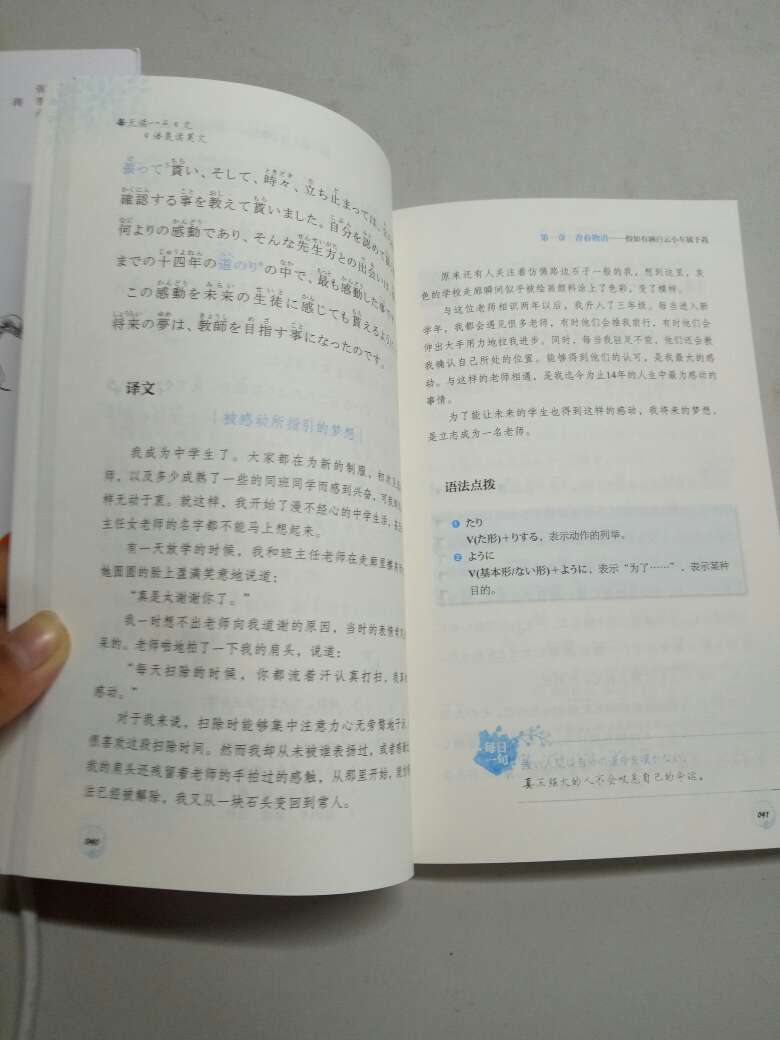 每天读一点日文
日语最读美文
張って貰い、そして、時々、立ち止まっては、
確認する事を教えて貰いました。自分を認めて
何よりの感動であり、そんな先生方との出会いは、
までの十四年の道のりの中で、最も感動した事
この感動を未来の生徒に感じても貰えるように
将来の夢は、教師を目指す事になったのです。
译文
被感动所指引的梦想
我成为中学生了。大家都在为新的制服，
师，以及多少成熟了一些的同班同学而感到兴奋，可我
样无动于衷。就这样，我开始了漫不经心的中学生活，
主任女老师的名字都不能马上想起来。
有一天放学的时候，我和班主任老师在走廊里
她圆圆的脸上盈满笑意地说道：
“真是太谢谢你了。”
我一时想不出老师向我道谢的原因，当时的表情
呆的。老师啪地拍了一下我的肩头，说道：
“每天扫除的时候，你都流着汗认真打扫，我
感动。”
对于我来说，扫除时能够集中注意力心无旁骛地
很喜欢这段扫除时间。然而我却从未被谁表扬过，或者感谢
我的肩头还残留着老师的手拍过的感触，从那里开始，
法已经被解除，我又从一块石头变回到常人。
040
第一章 青春物语——假如有辆白云小车属于我
原来还有人关注着仿佛路边石子一般的我，想到这里，灰
色的学校走廊瞬间似乎被绘画颜料涂上了色彩，变了模样。
与这位老师相识两年以后，我升入了三年级。每当进入新
学年，我都会遇见很多老师，有时他们会推我前行，有时他们会
伸出大手用力地拉我进步。同时，每当我驻足不前，他们还会教
我确认自己所处的位置。能够得到他们的认可，是我最大的感
动。与这样的老师相遇，是我迄今为止14年的人生中最为感动的
事情。
为了能让未来的学生也得到这样的感动，我将来的梦想，
是立志成为一名老师。
语法点拨
1 たり
V(た形)+りする，表示动作的列举。
2 ように
V(基本形/ない形)+ように，表示“为了……”，表示某种
目的。
每日
一句
強い人間は自分の運命を嘆かない。
真正强大的人不会叹息自己的命运。
041